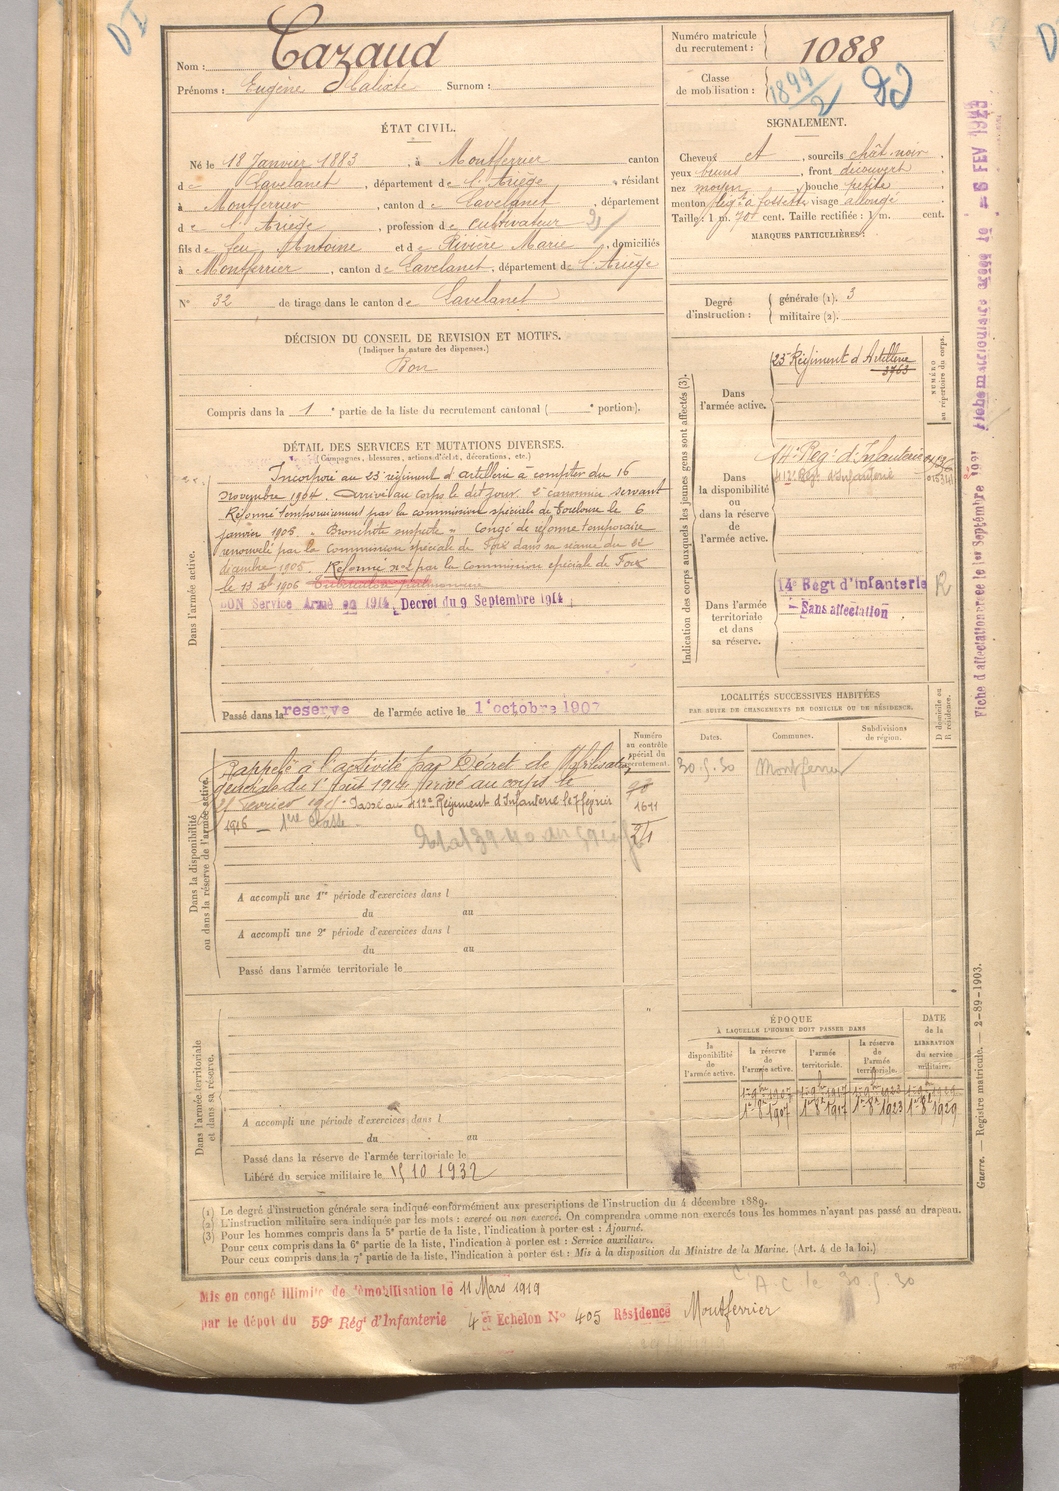 Nom : Cazaud
Prénoms : Eugène Calixte Surnom :
Numéro matricule du recrutement : 1088
Classe de mobilisation : 1899/2
ÉTAT CIVIL.
Né le 18 Janvier 1883, à Montferrier canton
de Lavelanet, département de l'Ariège, résidant
à Montferrier, canton de Lavelanet, département
de l'Ariège, profession de cultivateur
fils de feu Antoine et de Rivière Marie, domiciliés
à Montferrier, canton de Lavelanet, département de l'Ariège
N° 32 de tirage dans le canton de Lavelanet
SIGNALEMENT.
Cheveux et, sourcils chât. noir,
yeux bruns, front découvert
nez moyen, bouche petite,
menton à fossette visage allongé
Taille : 1 m. 70 cent. Taille rectifiée : 1 m. cent.
MARQUES PARTICULIÈRES :
Degré d'instruction : générale (1). 3
militaire (2).
DÉCISION DU CONSEIL DE REVISION ET MOTIFS.
(Indiquer la nature des dispenses.)
Bon
Compris dans la 1e partie de la liste du recrutement cantonal ( e portion).
DÉTAIL DES SERVICES ET MUTATIONS DIVERSES.
(Campagnes, blessures, actions d'éclat, décorations, etc.)
Dans l'armée active.
Incorporé au 23 régiment d'artillerie à compter du 16
novembre 1904. Arrivé au corps le dit jour. 2e canonnier servant
Réformé temporairement par la commission spéciale de Toulouse le 6
janvier 1905. " Bronchite suspecte " Congé de réforme temporaire
renouvelé par la commission spéciale de Foix dans sa séance du 22
décembre 1905. Réformé n°2 par la commission spéciale de Foix
le 13 Xbre 1906 Tuberculose pulmonaire
BON Service Armé en 1914, Decret du 9 Septembre 1914
Passé dans la reserve de l'armée active le 1er octobre 1907
Indication des corps auxquels les jeunes gens sont affectés (3).
Dans l'armée active.
23e Régiment d'Artillerie
3763
NUMÉRO au répertoire du corps.
Dans la disponibilité ou dans la réserve de l'armée active.
14e Régt d'Infanterie
112e Régt d'Infanterie
Dans l'armée territoriale et dans sa réserve.
14e Régt d'infanterie
Sans affectation
R
LOCALITÉS SUCCESSIVES HABITÉES
PAR SUITE DE CHANGEMENTS DE DOMICILE OU DE RÉSIDENCE.
Dates. Communes. Subdivisions de région. D domicile ou R résidence.
30.5.30 Montferrier
Dans la disponibilité ou dans la réserve de l'armée active.
Numéro au contrôle spécial du recrutement.
Rappelé à l'activité par Décret de Mobilisation
générale du 1er Août 1914 arrivé au corps le
février 1915 - Passé au 112e Régiment d'Infanterie le 7 février
1916 - 1ère Classe
1611
A accompli une 1re période d'exercices dans l
du au
A accompli une 2e période d'exercices dans l
du au
Passé dans l'armée territoriale le
Dans l'armée territoriale et dans sa réserve.
A accompli une période d'exercices dans l
du au
Passé dans la réserve de l'armée territoriale le
Libéré du service militaire le 15 10 1932
ÉPOQUE
À LAQUELLE L'HOMME DOIT PASSER DANS
la disponibilité de l'armée active. la réserve de l'armée active. l'armée territoriale. la réserve de l'armée territoriale. DATE de la LIBÉRATION du service militaire.
1er 8bre 1907 1er 8bre 1917 1er 8bre 1923 1er 8bre 1929
(1) Le degré d'instruction générale sera indiqué conformément aux prescriptions de l'instruction du 4 décembre 1889.
(2) L'instruction militaire sera indiquée par les mots : exercé ou non exercé. On comprendra comme non exercés tous les hommes n'ayant pas passé au drapeau.
(3) Pour les hommes compris dans la 5e partie de la liste, l'indication à porter est : Ajourné.
Pour ceux compris dans la 6e partie de la liste, l'indication à porter est : Service auxiliaire.
Pour ceux compris dans la 7e partie de la liste, l'indication à porter est : Mis à la disposition du Ministre de la Marine. (Art. 4 de la loi.)
Guerre. — Registre matricule. — 2-89-1903.
Mis en congé illimité de démobilisation le 11 Mars 1919
par le dépot du 59e Régt d'Infanterie 4e Echelon N° 405 Résidence Montferrier
A C le 30.5.30